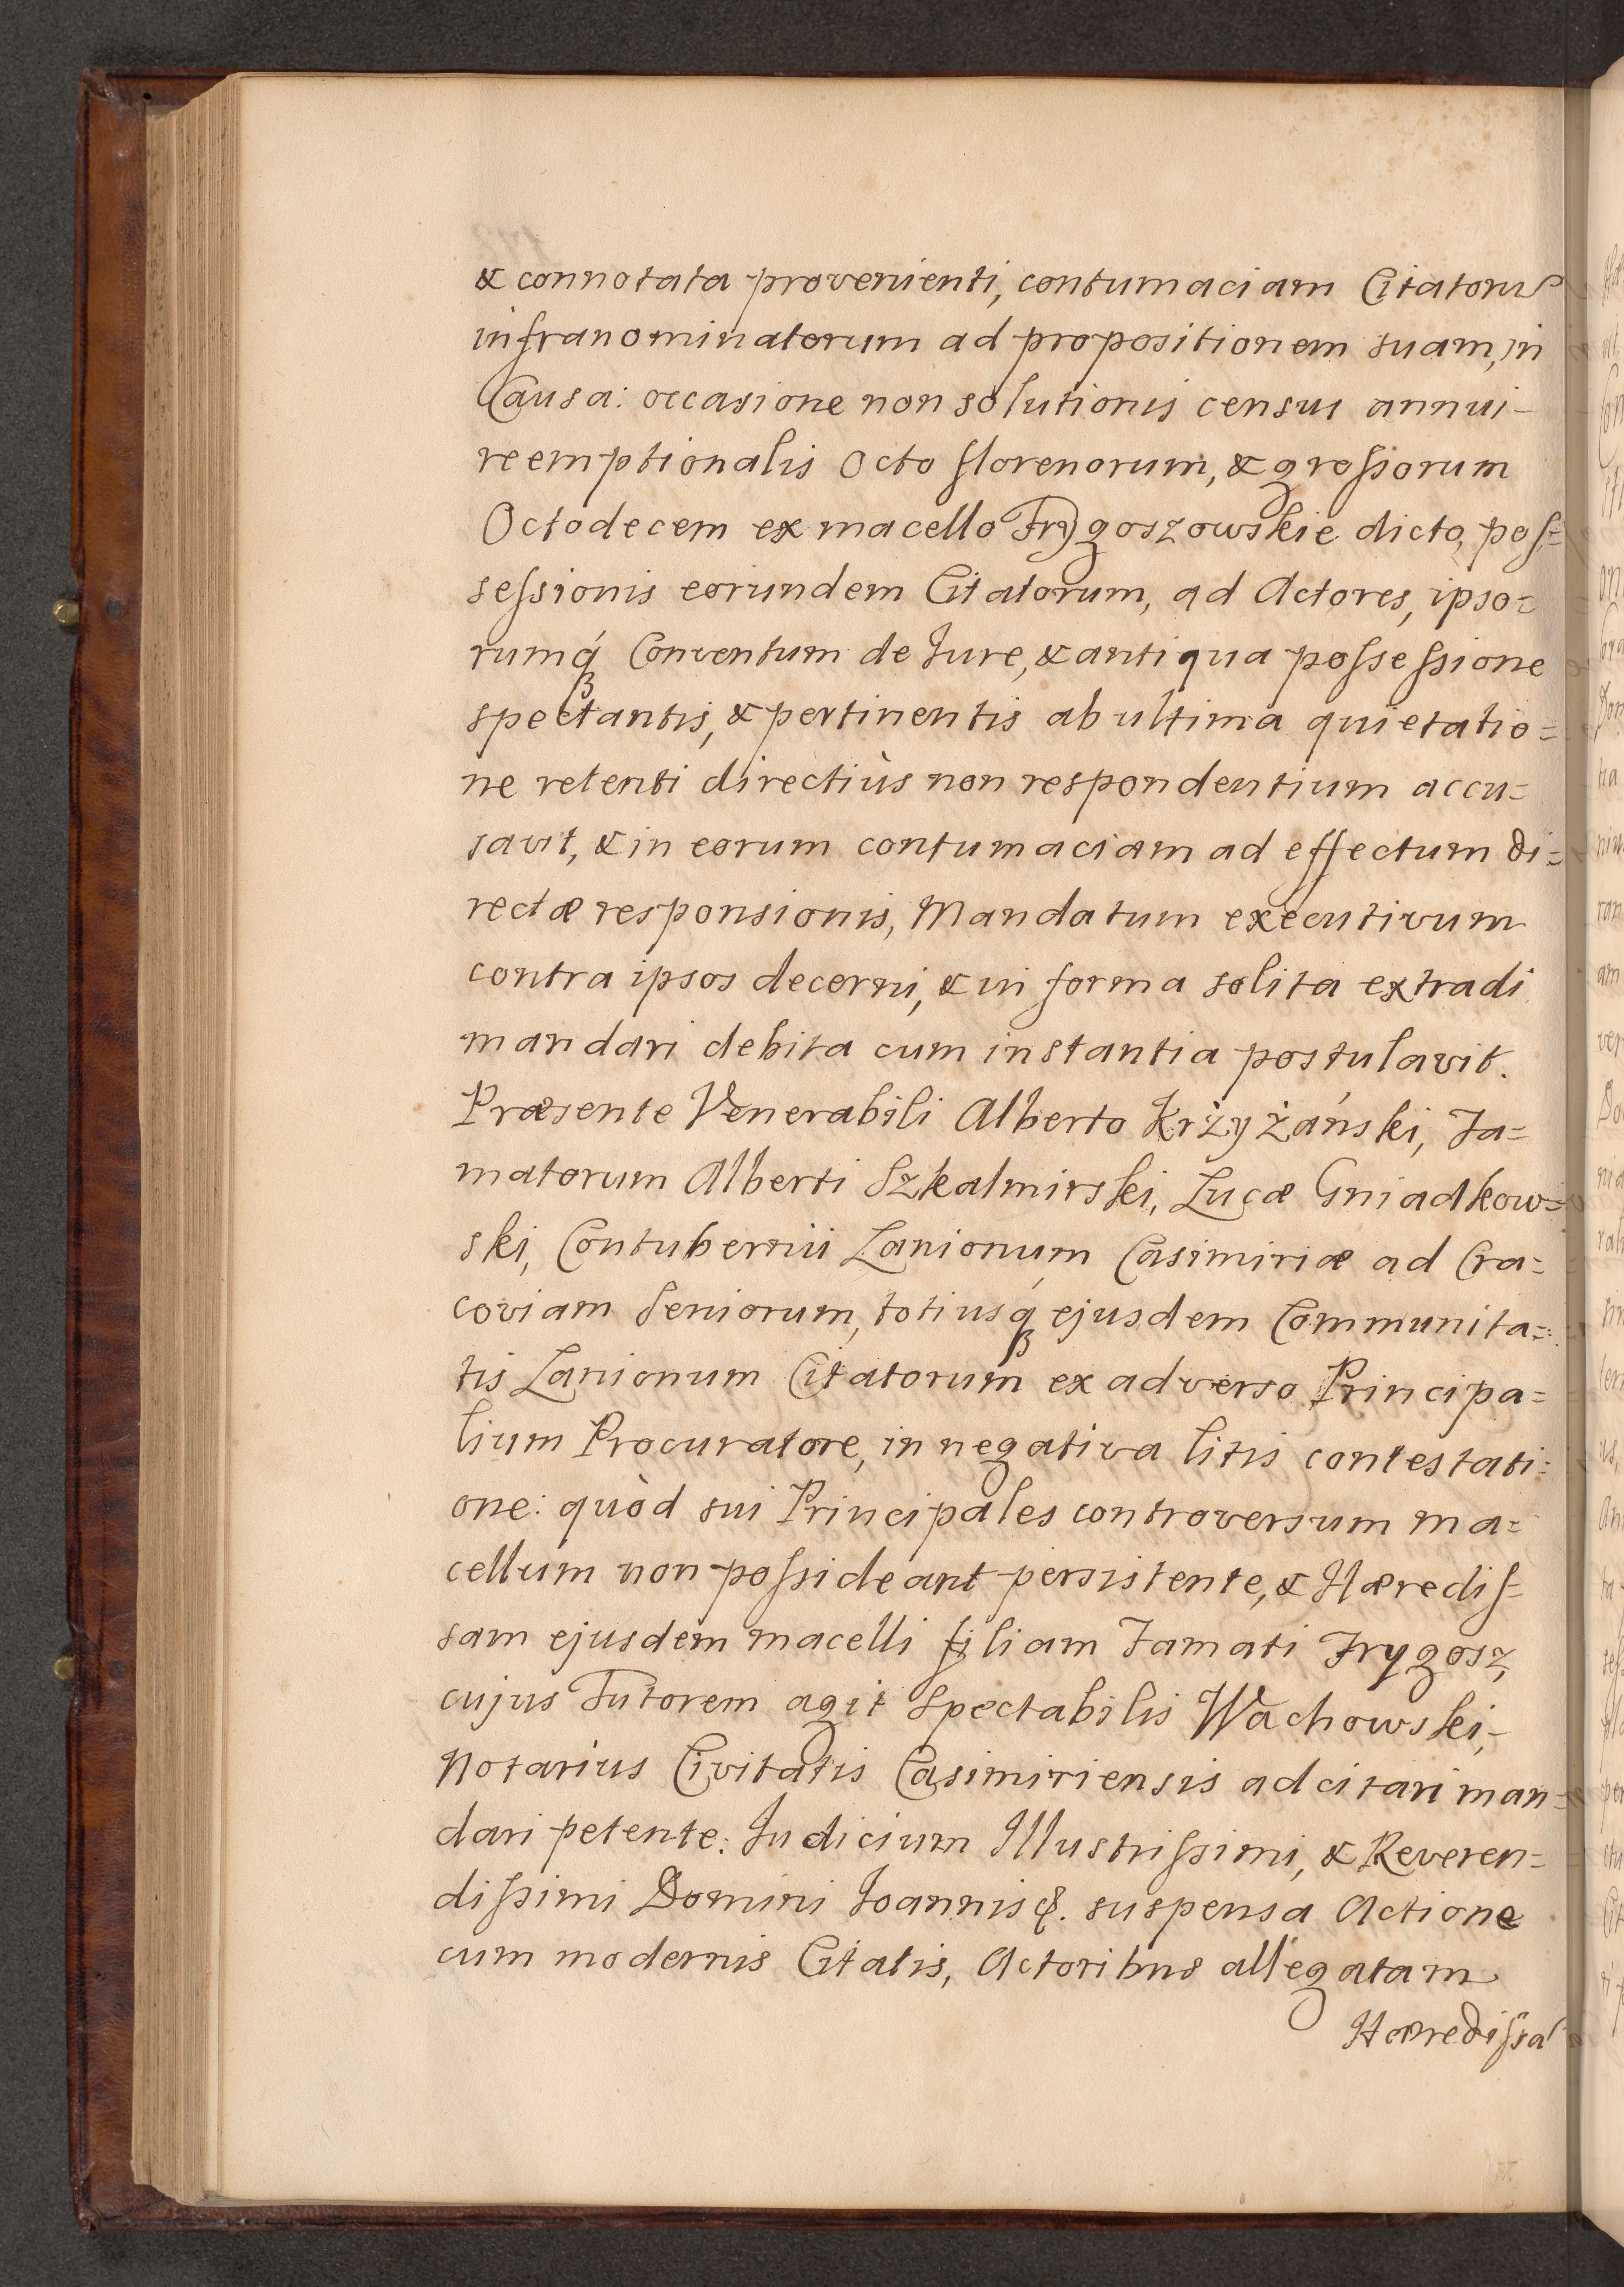 & connotata provenienti, contumaciam Citatorũ
infranominatorum ad propositionem suam, in
Causa: occasione non solutionis census annui-
reemptionalis Octo florenorum, & grossorum
Octodecem ex macello Frygoszowskie dicto, pos=
sessionis eorundem Citatorum, ad Actores, ipso=
rumq́ Conventum de Jure, & antiqua possessione
spectantis, & pertinentis ab ultima quietatio=
ne retenti directiùs non respondentium accu=
savit, & in eorum contumaciam ad effectum di=
rectæ responsionis, Mandatum executivum
contra ipsos decerni, & in forma solita extradi
mandari debita cum instantia postulavit.
Præsente Venerabili Alberto Krżyżáński, Fa=
matorum Alberti Szkalmirski, Lucæ Gniadkow=
ski, Contubernii Lanionum Casimiriæ ad Cra=
coviam Seniorum, totiusq́ ejusdem Communita=
tis Lanionum Citatorum ex adverso Principa=
lium Procuratore, in negativa litis contestati=
one: quòd sui Principales controversum ma=
cellum non possideant persistente, & Hæredis=
sam ejusdem macelli filiam Famati Frygosz,
cujus Tutorem agit Spectabilis Wachowski,-
Notarius Civitatis Casimiriensis adcitari man=
dari petente: Judicium Illustrissimi, & Reveren=
dissimi Domini Joannis &. suspensa Actione
cum modernis Citatis, Actoribus allegatam
Hæredissã